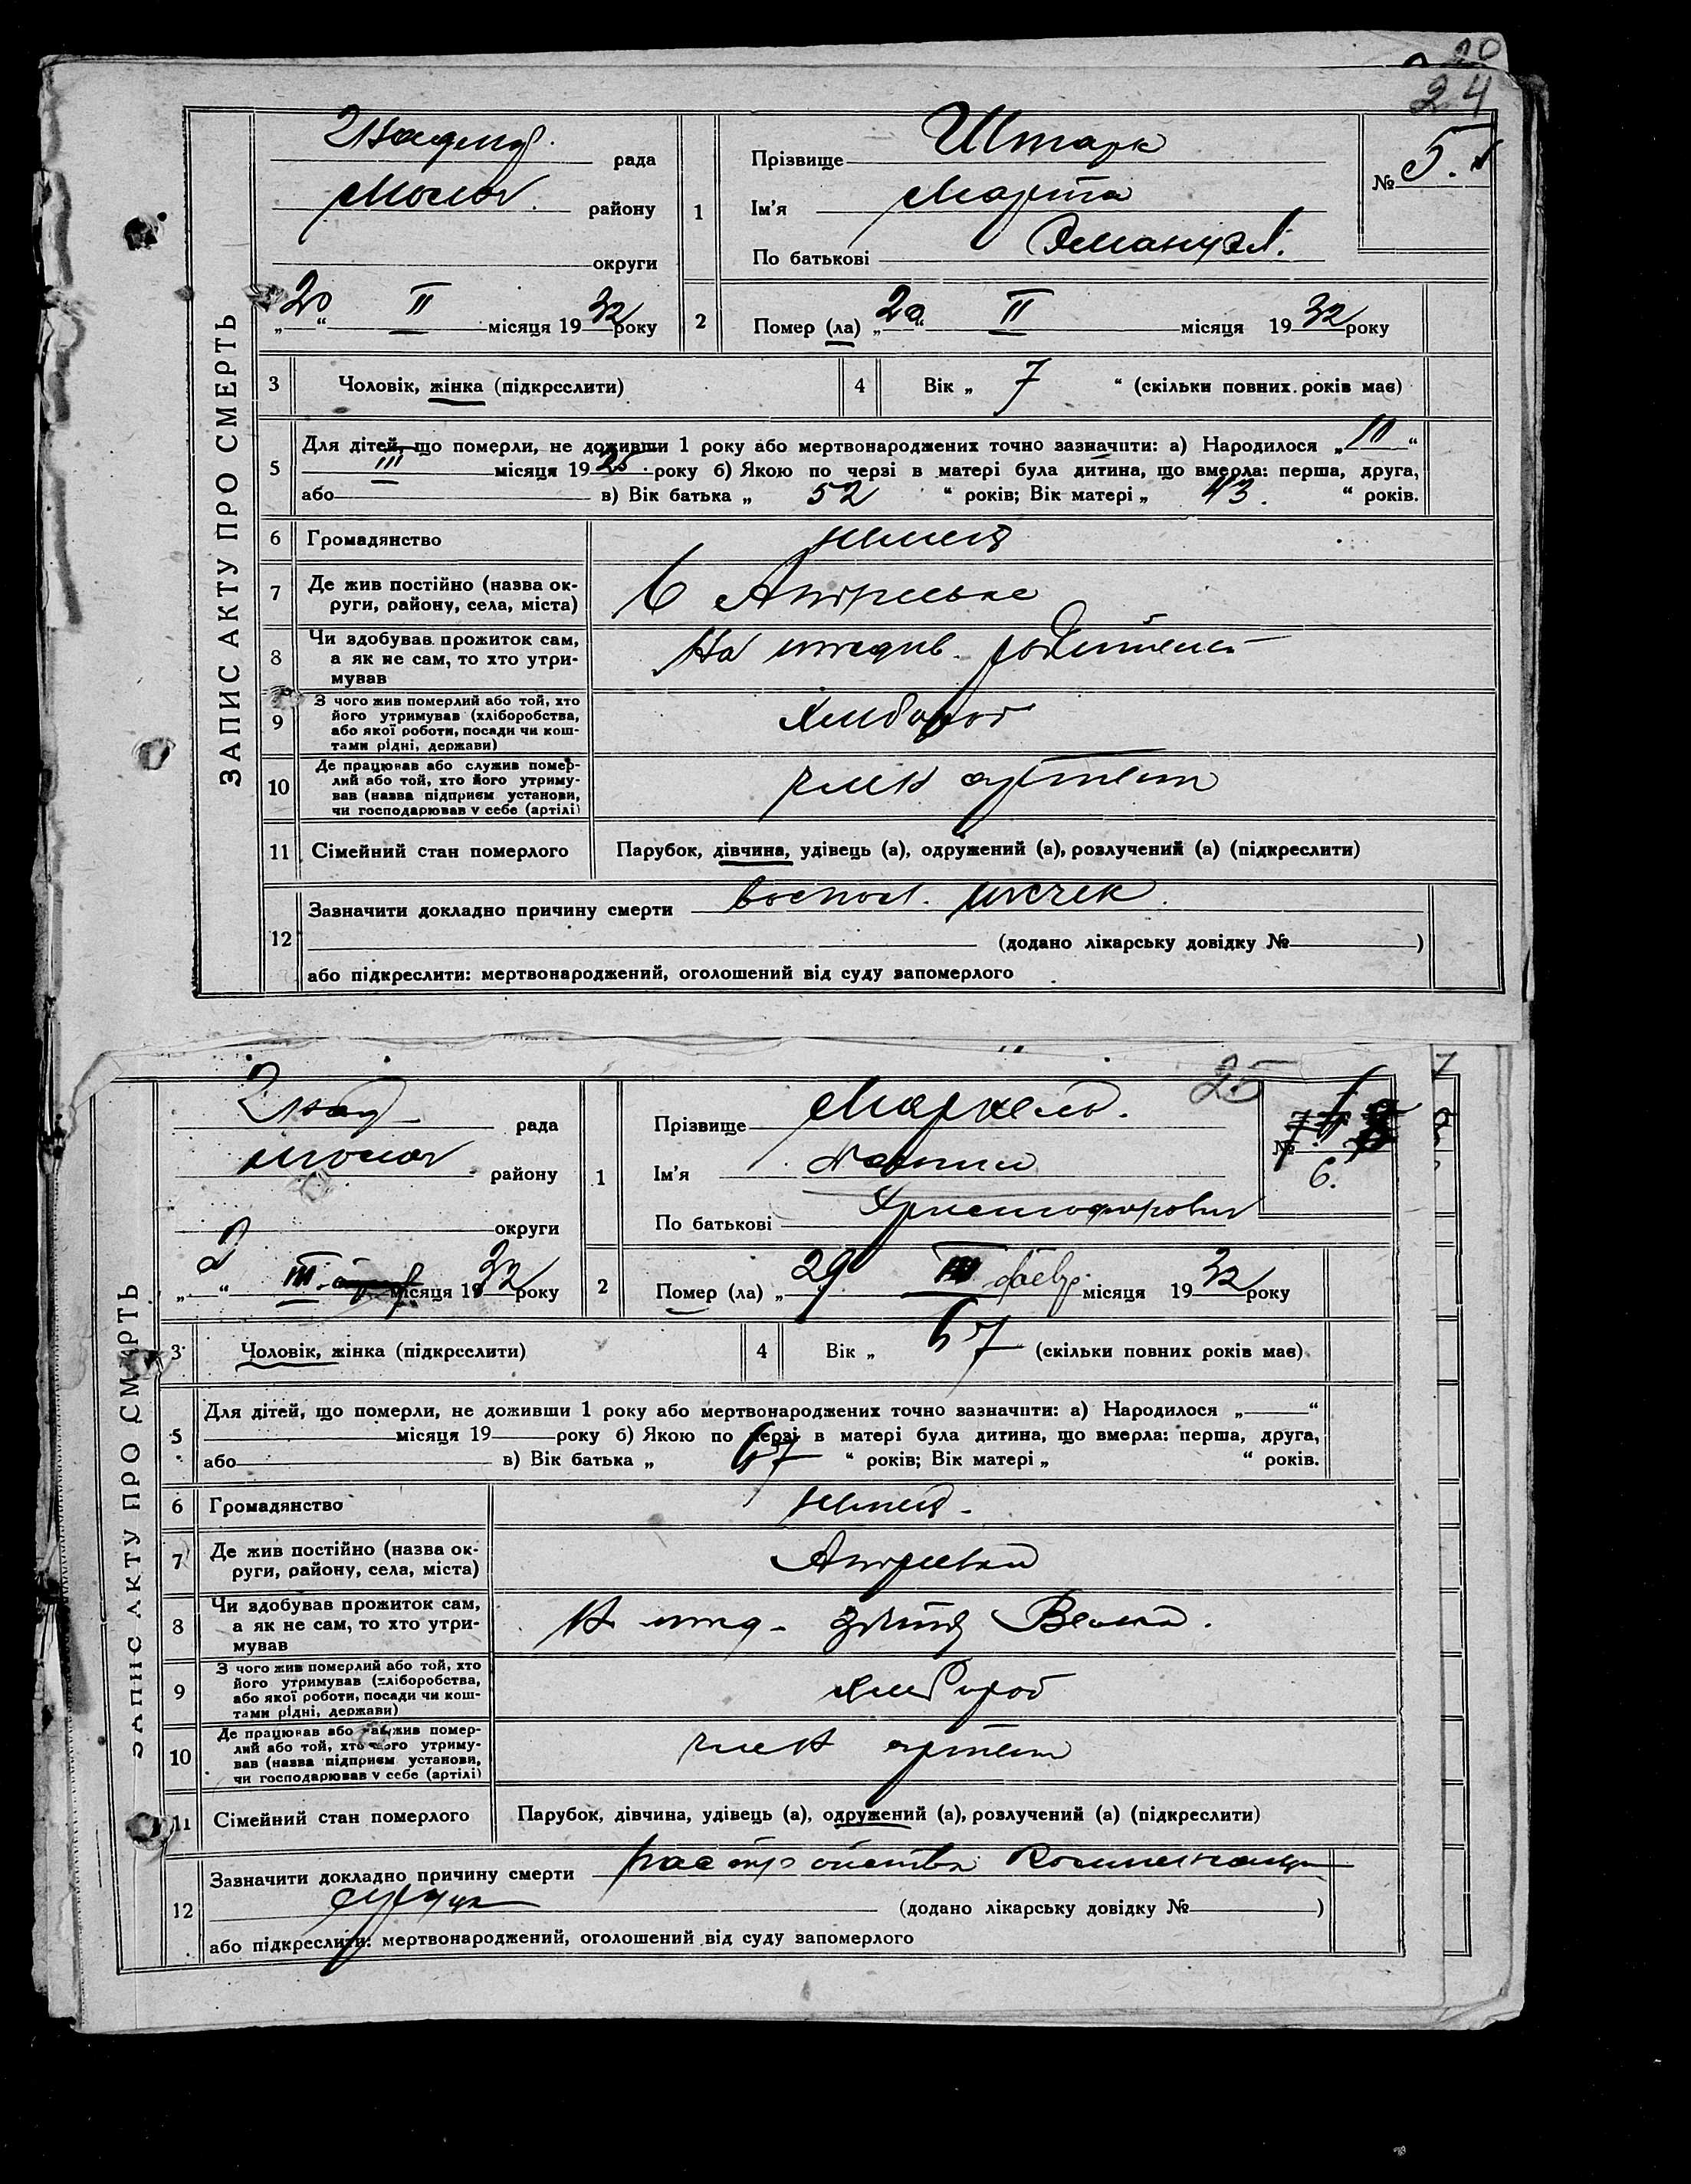 20
24
ЗАПИС АКТУ ПРО СМЕРТЬ
рада
району
округи
"20" II місяця 1932 року
1
Прізвище Штарк
Ім'я Марта
По батькові Эмануэл.
№ 5.
2
Помер (ла) „20" II місяця 1932 року
3
Чоловік, жінка (підкреслити)
4
Вік „ 7 " (скільки повних років має)
5
Для дітей, що померли, не доживши 1 року або мертвонароджених точно зазначити: а) Народилося „ "
III місяця 1925 року б) Якою по черзі в матері була дитина, що вмерла: перша, друга,
або в) Вік батька „ 52 " років; Вік матері „ 43. " років.
6
Громадянство
7
Де жив постійно (назва ок-
руги, району, села, міста)
8
Чи здобував прожиток сам,
а як не сам, то хто утри-
мував
На иждив. родителей
9
З чого жив померлий або той, хто
його утримував (хліборобства,
або якої роботи, посади чи кош-
тами рідні, держави)
хлібороб
10
Де працював або служив помер-
лий або той, хто його утриму-
вав (назва підприєм установи,
чи господарював у себе (артілі)
член артели
11
Сімейний стан померлого
Парубок, дівчина, удівець (а), одружений (а), розлучений (а) (підкреслити)
12
Зазначити докладно причину смерти воспол. почек.
(додано лікарську довідку № )
або підкреслити: мертвонароджений, оголошений від суду запомерлого
25
ЗАПИС АКТУ ПРО СМЕРТЬ
рада
району
округи
"2" III місяця 1932 року
1
Прізвище
Ім'я
По батькові Християфорович
№ 6.
2
Помер (ла) „29 февр. місяця 1932 року
3
Чоловік, жінка (підкреслити)
4
Вік „ 67 (скільки повних років має)
5
Для дітей, що померли, не доживши 1 року або мертвонароджених точно зазначити: а) Народилося „ "
місяця 19 року б) Якою по черзі в матері була дитина, що вмерла: перша, друга,
або в) Вік батька „ 67 " років; Вік матері „ " років.
6
Громадянство
7
Де жив постійно (назва ок-
руги, району, села, міста)
8
Чи здобував прожиток сам,
а як не сам, то хто утри-
мував
9
З чого жив померлий або той, хто
його утримував (хліборобства,
або якої роботи, посади чи кош-
тами рідні, держави)
хлібороб
10
Де працював або служив помер-
лий або той, хто його утриму-
вав (назва підприєм установи,
чи господарював у себе (артілі)
член артели
11
Сімейний стан померлого
Парубок, дівчина, удівець (а), одружений (а), розлучений (а) (підкреслити)
12
Зазначити докладно причину смерти расстройства
сердца
(додано лікарську довідку № )
або підкреслити: мертвонароджений, оголошений від суду запомерлого